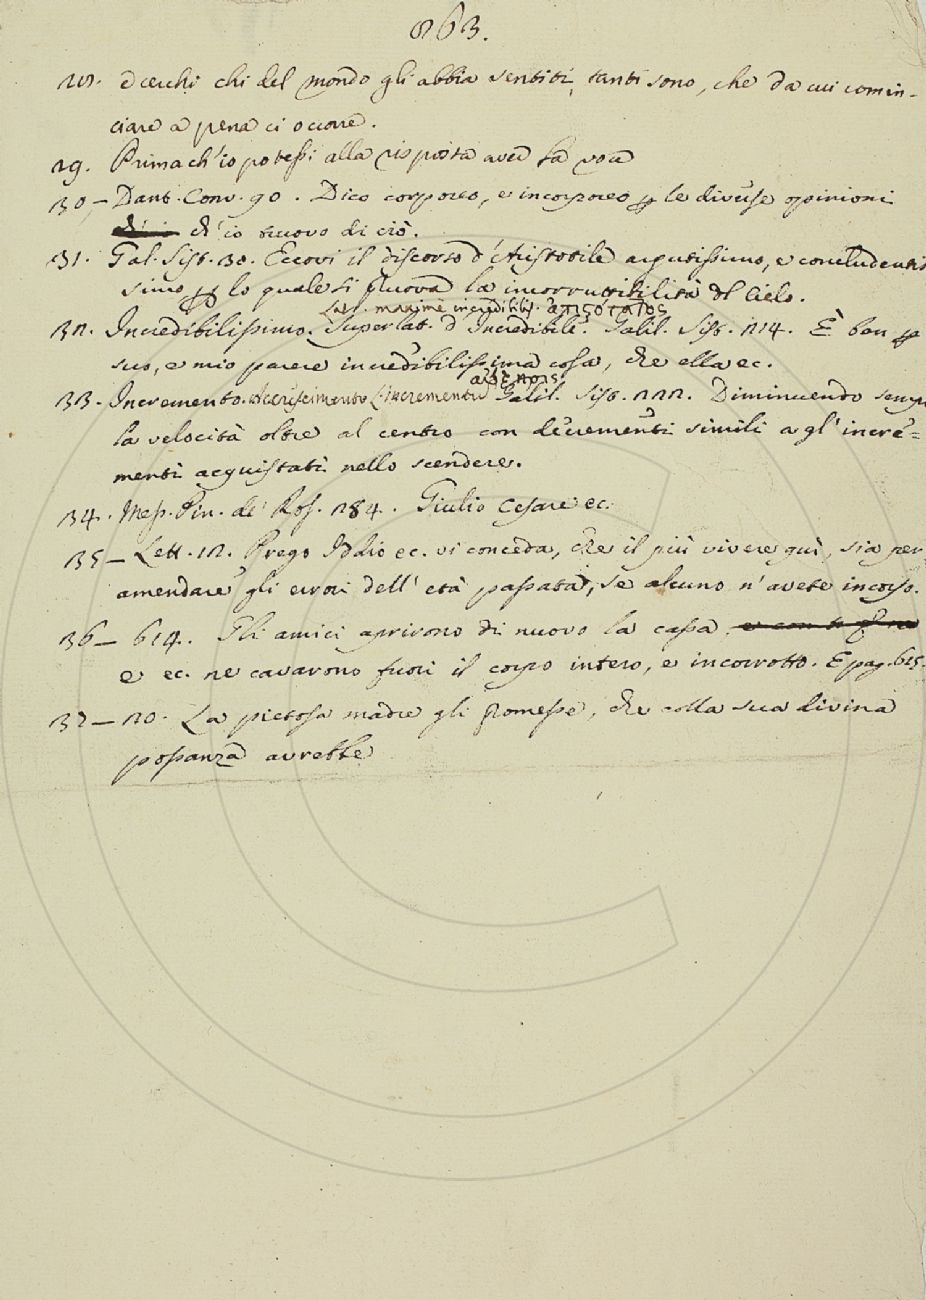 863.
28. O cerchi chi del mondo gli abbia sentiti, tanti sono, che da cui comin-
ciare a pena ci occorre.
29. Prima ch'io potessi alla risposta aver la voce
30.- Dant. Conv. 90. Dico corporeo, e incorporeo p le diverse opinioni
ch'io truovo di ciò.
31. Gal. Sist. 30. Eccovi il discorso d'Aristotile argutissimo, e concludentis
simo p lo quale si pruova la incorruttibilità del Cielo.
Lat. maxime incredibilis. ἀπιςοτατος
32. Incredibilissimo. Superlat. d'Incredibile. Galil. Sist. 214. È ben p
suo, e mio parere incredibilissima cosa, che ella ec.
ἀυξησις
33. Incremento. Accrescimento L. incrementum Galil. Sist. 222. Diminuendo sempre
la velocità oltre al centro con decrementi simili agl'incre=
menti acquistati nello scendere.
34. Mess. Pin. de' Ros. 284. Giulio Cesare ec.
35- Lett. 12. Prego Iddio ec. vi conceda, che il più vivere quì, sia per
amendare gli errori dell'età passata, se alcuno n'avete incorso.
36- 614. Gli amici aprirono di nuovo la cassa
e ec. ne cavarono fuori il corpo intero, e incorrotto. E pag. 615.
37- 20. La pietosa madre gli promesse, che colla sua divina
possanza avrebbe